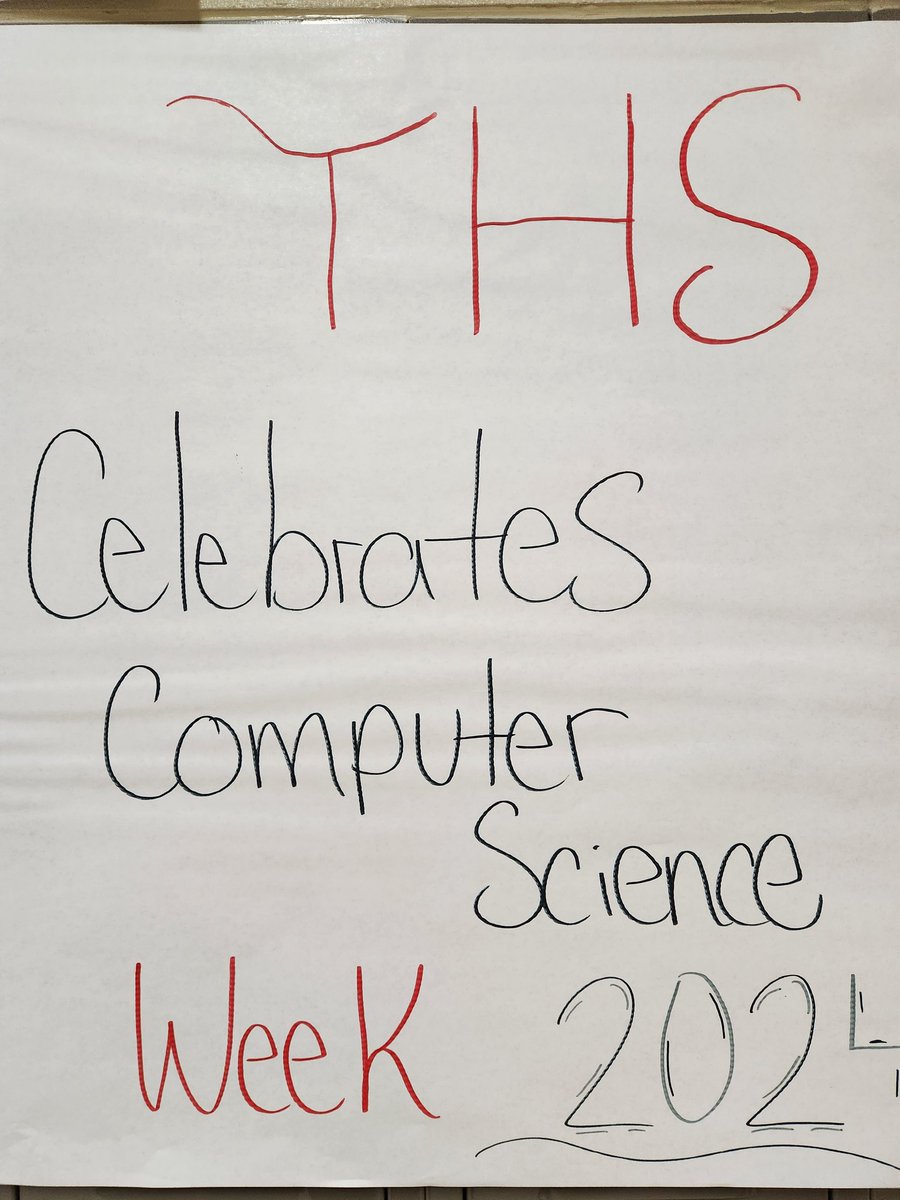 THS
Celebrates
Computer
Science
Week 2024